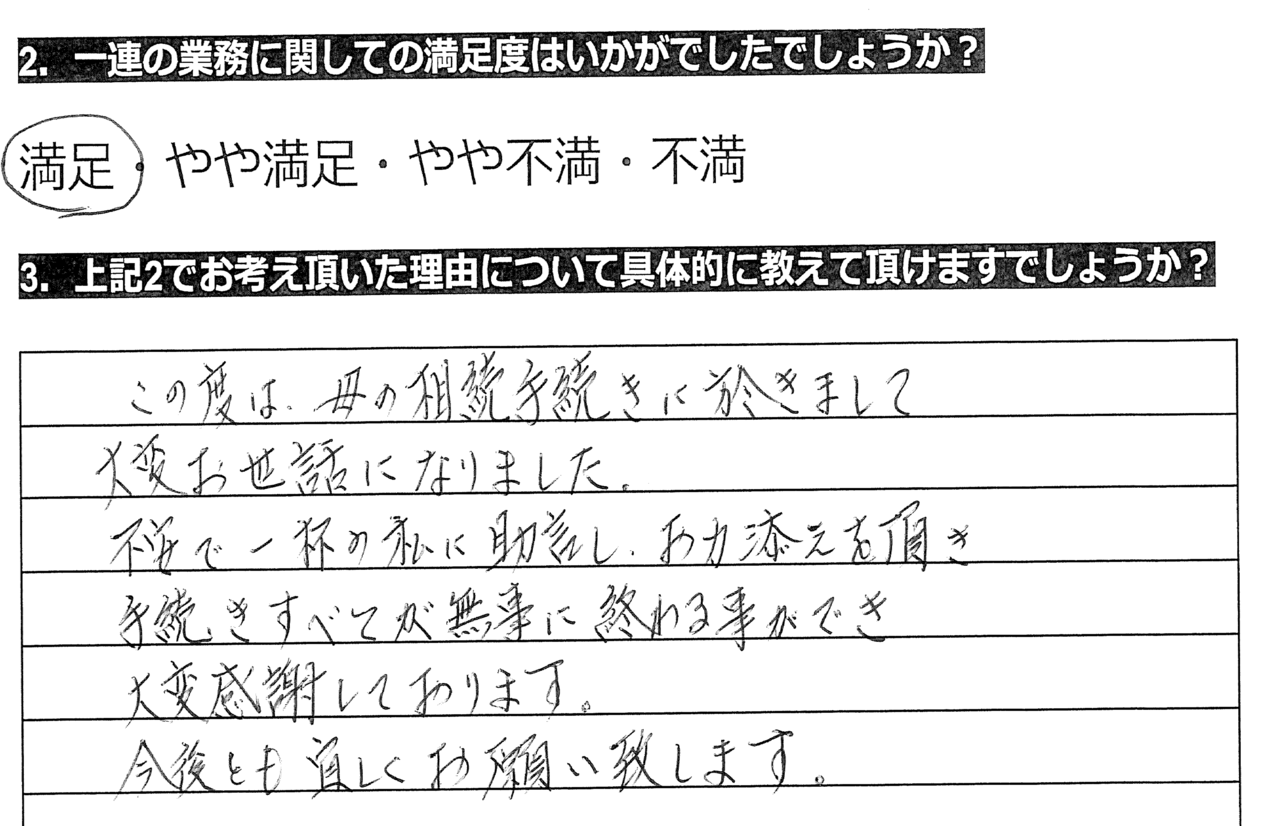 2. 一連の業務に関しての満足度はいかがでしたでしょうか？
満足・やや満足・やや不満・不満
3. 上記2でお考え頂いた理由について具体的に教えて頂けますでしょうか？
この度は、母の相続手続きに於きまして
大変お世話になりました。
不安で一杯の私に助言し、お力添えを頂き
手続きすべてが無事に終わる事ができ
大変感謝しております。
今後とも宜しくお願い致します。